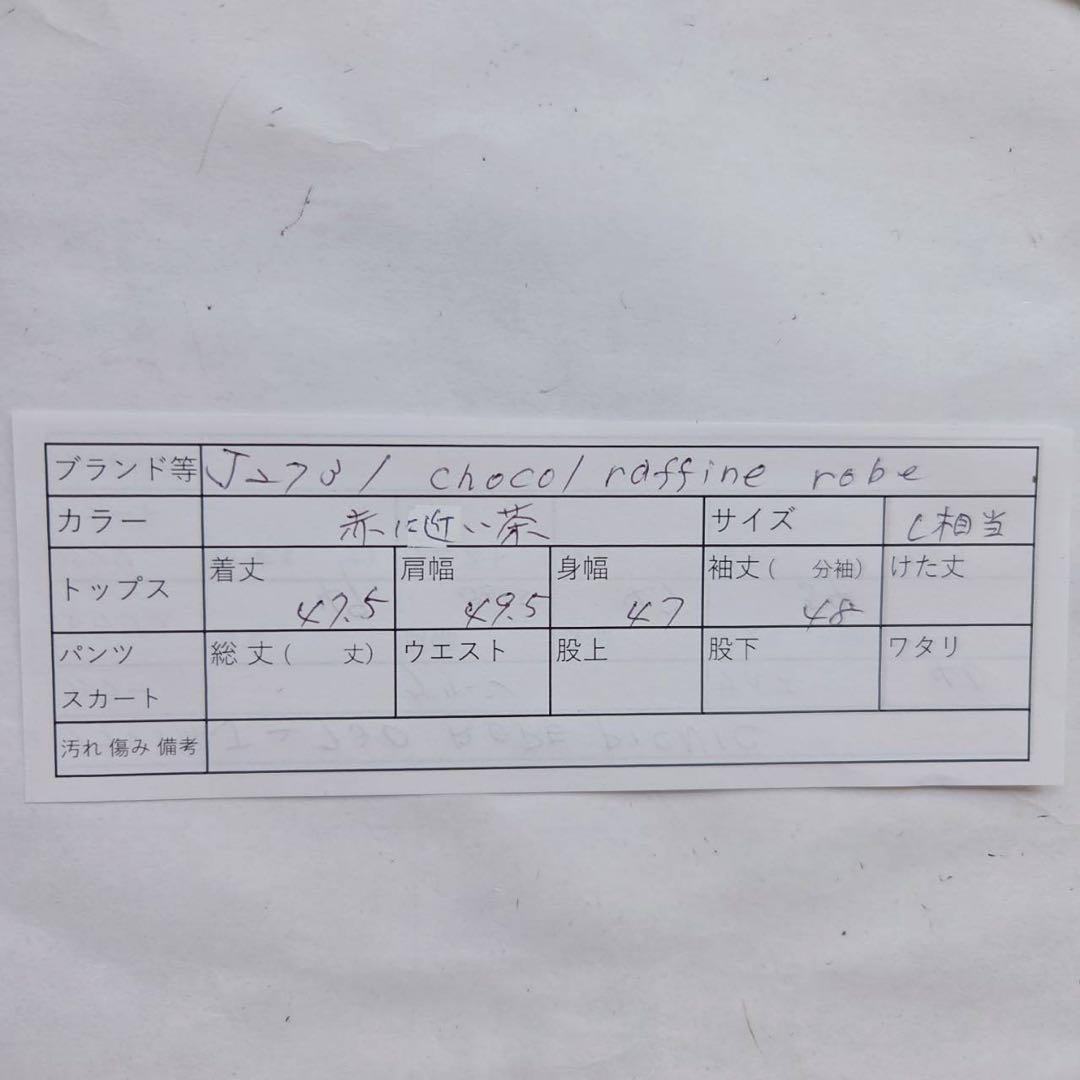 ブランド等 J2731 chocol raffine robe
カラー 赤に近い茶 サイズ L相当
トップス 着丈 47.5 肩幅 49.5 身幅 47 袖丈( 分袖) 48 けた丈
パンツ スカート 総丈( 丈) ウエスト 股上 股下 ワタリ
汚れ 傷み 備考